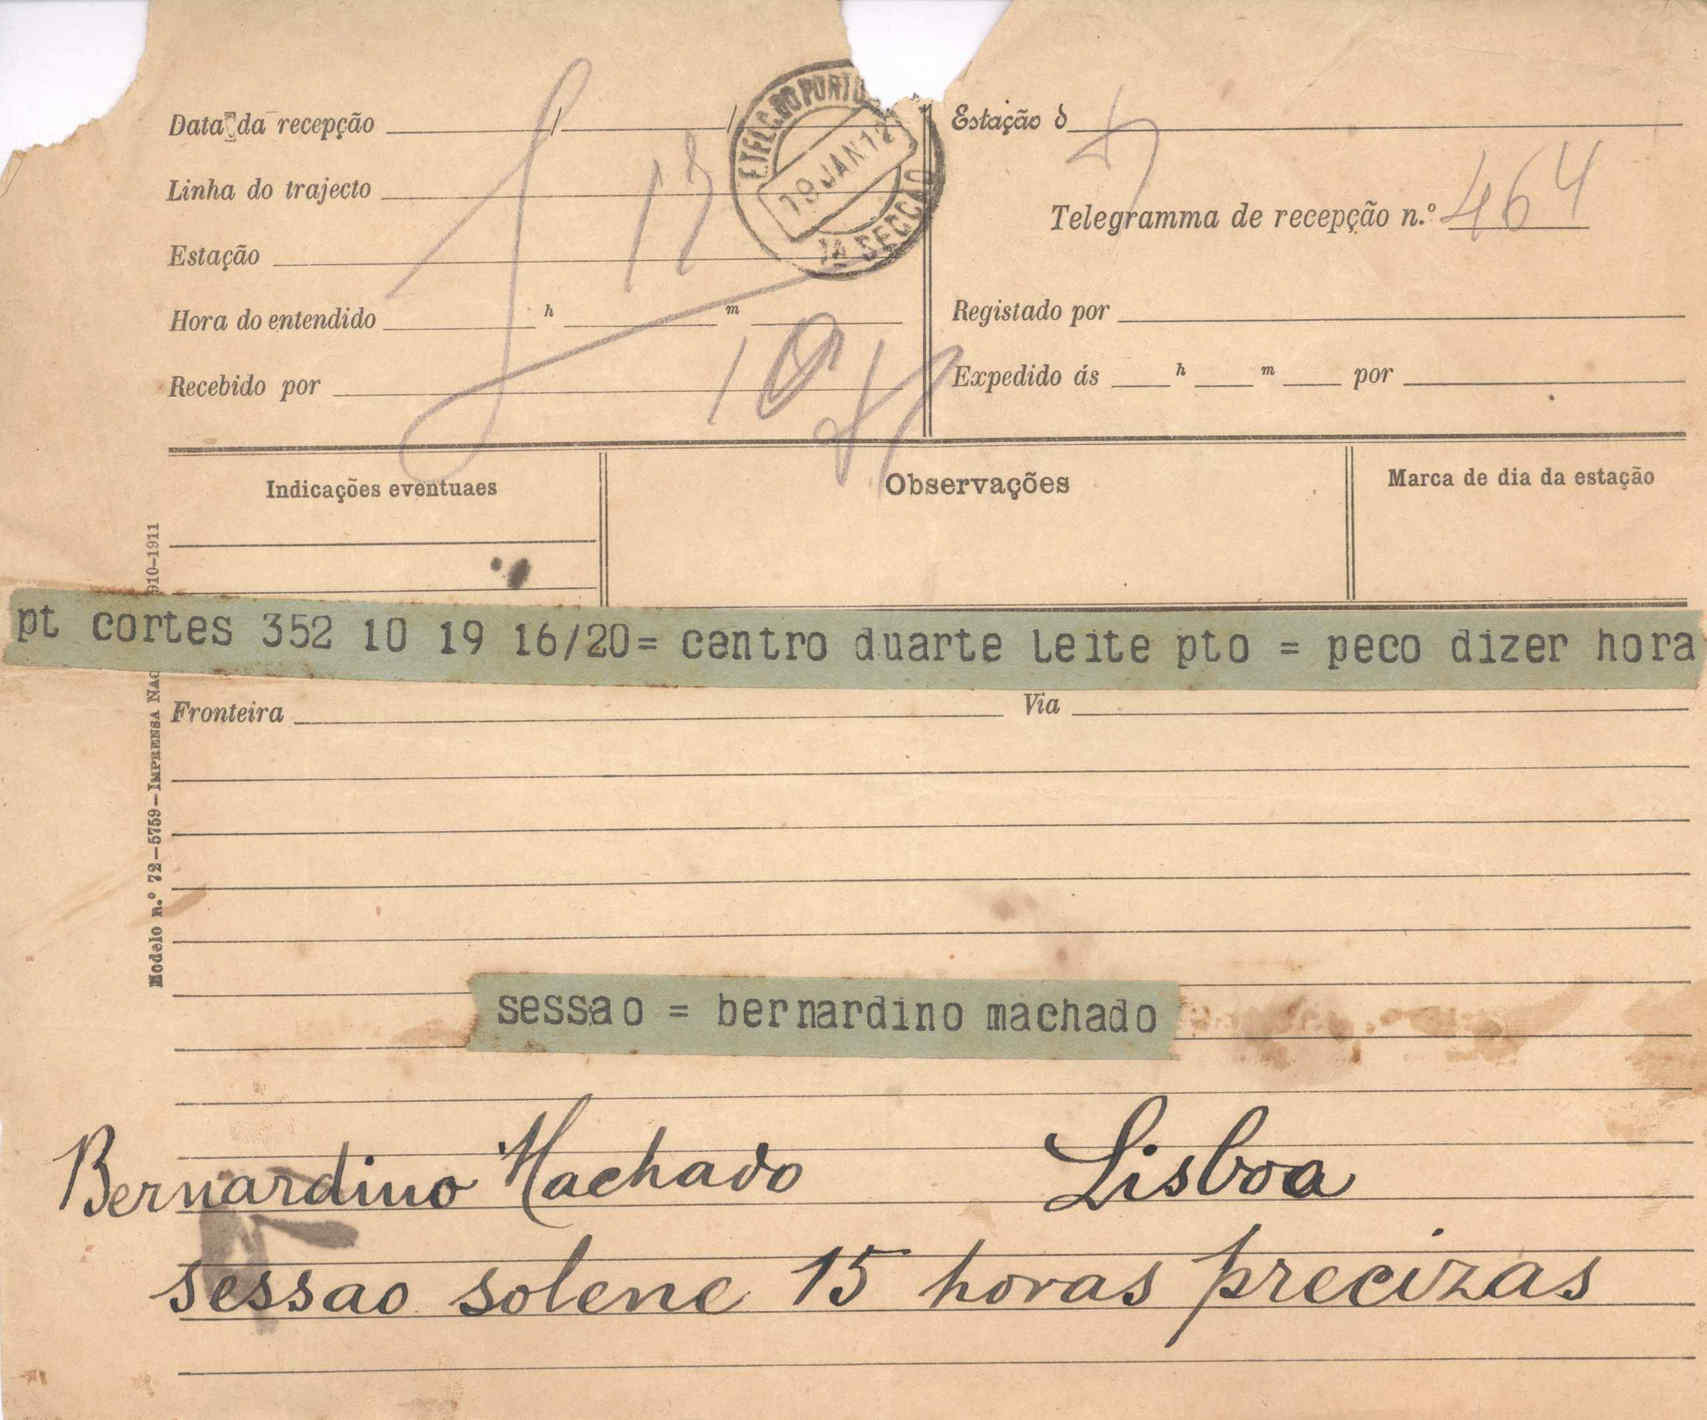 Data da recepção / /
Linha do trajecto
Estação
Hora do entendido h m
Recebido por
19 JAN 12
1A SECCAO
Estação d
Telegramma de recepção n.º 464
Registado por
Expedido ás h m por
Indicações eventuaes
Observações
Marca de dia da estação
pt cortes 352 10 19 16/20= centro duarte leite pto = peco dizer hora
Fronteira Via
Modelo n.º 72-5759-IMPRENSA 910-1911
sessao = bernardino machado
Bernardino Machado Lisboa
sessao solene 15 horas precizas